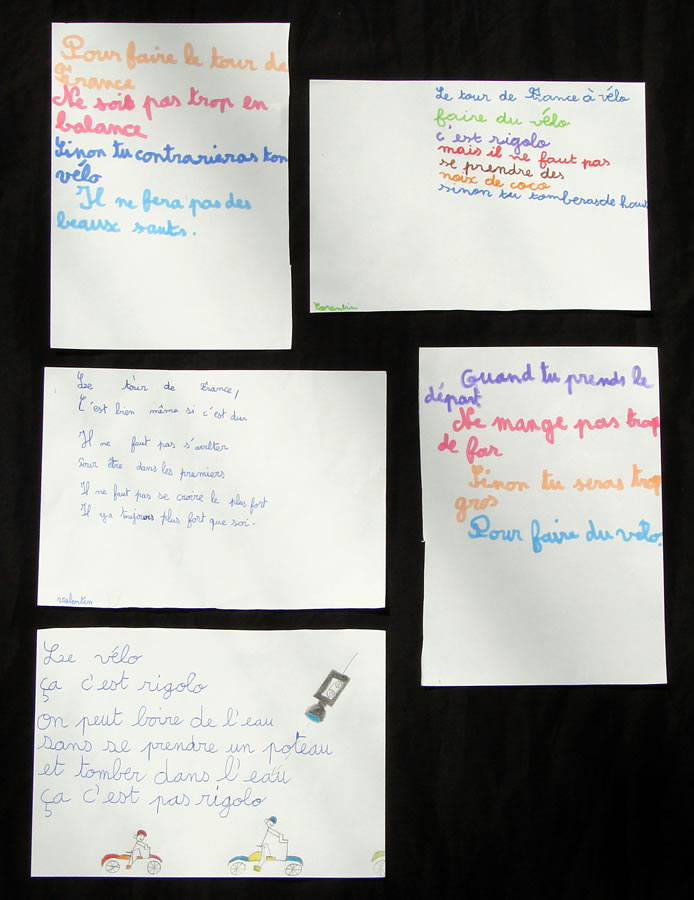 Pour faire le tour de
France
Ne sois pas trop en
balance
Sinon tu contrarieras ton
vélo
Il ne fera pas des
beaux sauts.
Le tour de France à vélo
faire du vélo
c'est rigolo
mais il ne faut pas
se prendre des
noix de coco
sinon tu tomberas de haut
Corentin
Le tour de France,
C'est bien même si c'est dur
Il ne faut pas s'arrêter
Pour être dans les premiers
Il ne faut pas se croire le plus fort
Il y a toujours plus fort que soi.
Valentin
Quand tu prends le
départ
Ne mange pas trop
de far
Sinon tu seras trop
gros
Pour faire du vélo.
Le vélo
ça c'est rigolo
on peut boire de l'eau
sans se prendre un poteau
et tomber dans l'eau
ça c'est pas rigolo